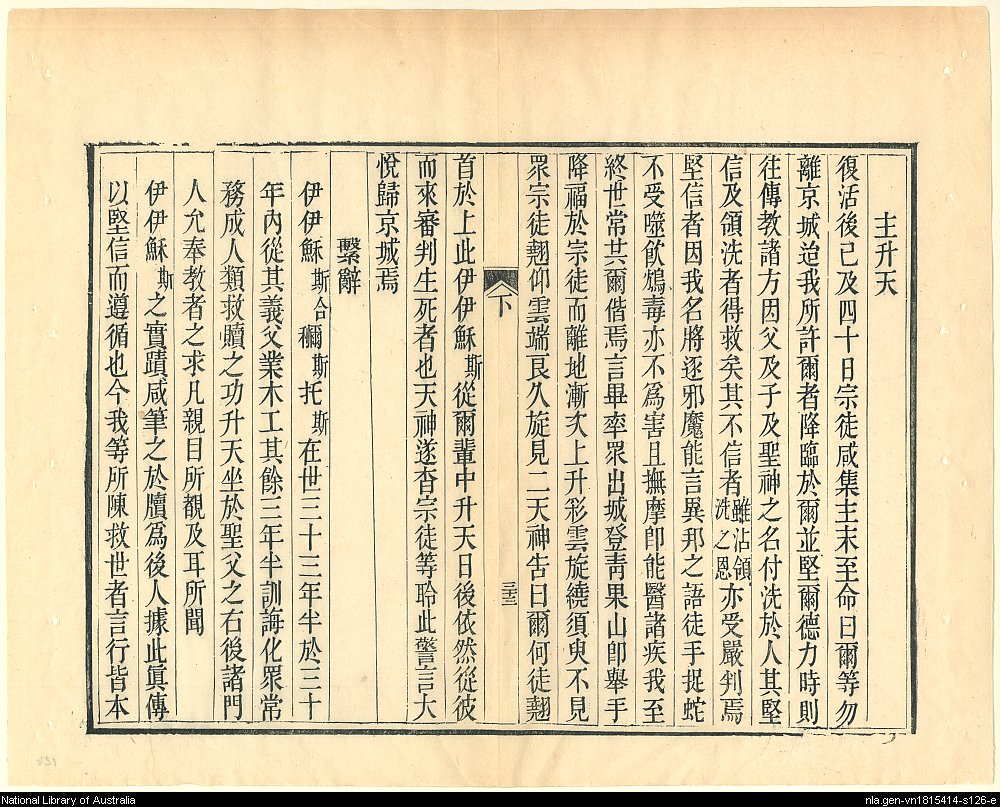 主升天
復活後已及四十日宗徒咸集主末至命曰爾等勿
離京城迨我所許爾者降臨於爾並堅爾德力時則
往傳教諸方因父及子及聖神之名付洗於人其堅
信及領洗者得救矣其不信者雖沾領洗之恩亦受嚴判焉
堅信者因我名將逐邪魔能言異邦之語徒手捉蛇
不受噬飲鴆毒亦不為害且撫摩卽能醫諸疾我至
終世常共爾偕焉言畢率眾出城登青果山卽舉手
降福於宗徒而離地漸次上升彩雲旋繞須臾不見
眾宗徒翹仰雲端良久旋見二天神告曰爾何徒翹
下
三十三
首於上此伊伊穌斯從爾輩中升天日後依然從彼
而來審判生死者也天神遂杳宗徒等聆此警言大
悅歸京城焉
繫辭
伊伊穌斯合穪斯托斯在世三十三年半於三十
年內從其義父業木工其餘三年半訓誨化眾常
務成人類救贖之功升天坐於聖父之右後諸門
人允奉教者之求凡親目所覩及耳所聞
伊伊穌斯之實蹟咸筆之於牘為後人據此眞傳
以堅信而遵循也今我等所陳救世者言行皆本
National Library of Australia
nla.gen-vn1815414-s126-e